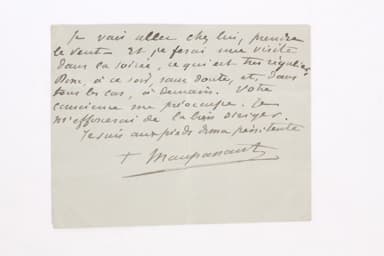 Je vais aller chez lui, prendre
le vent. Et je ferai une visite
dans la soirée, ce qui est très régulier.
Donc, à ce soir, sans doute, et, dans
tous les cas, à demain. Votre
conscience me préoccupe. Je
m'efforcerai de la bien diriger.
Je suis aux pieds de ma pénitente
+ Maupassant